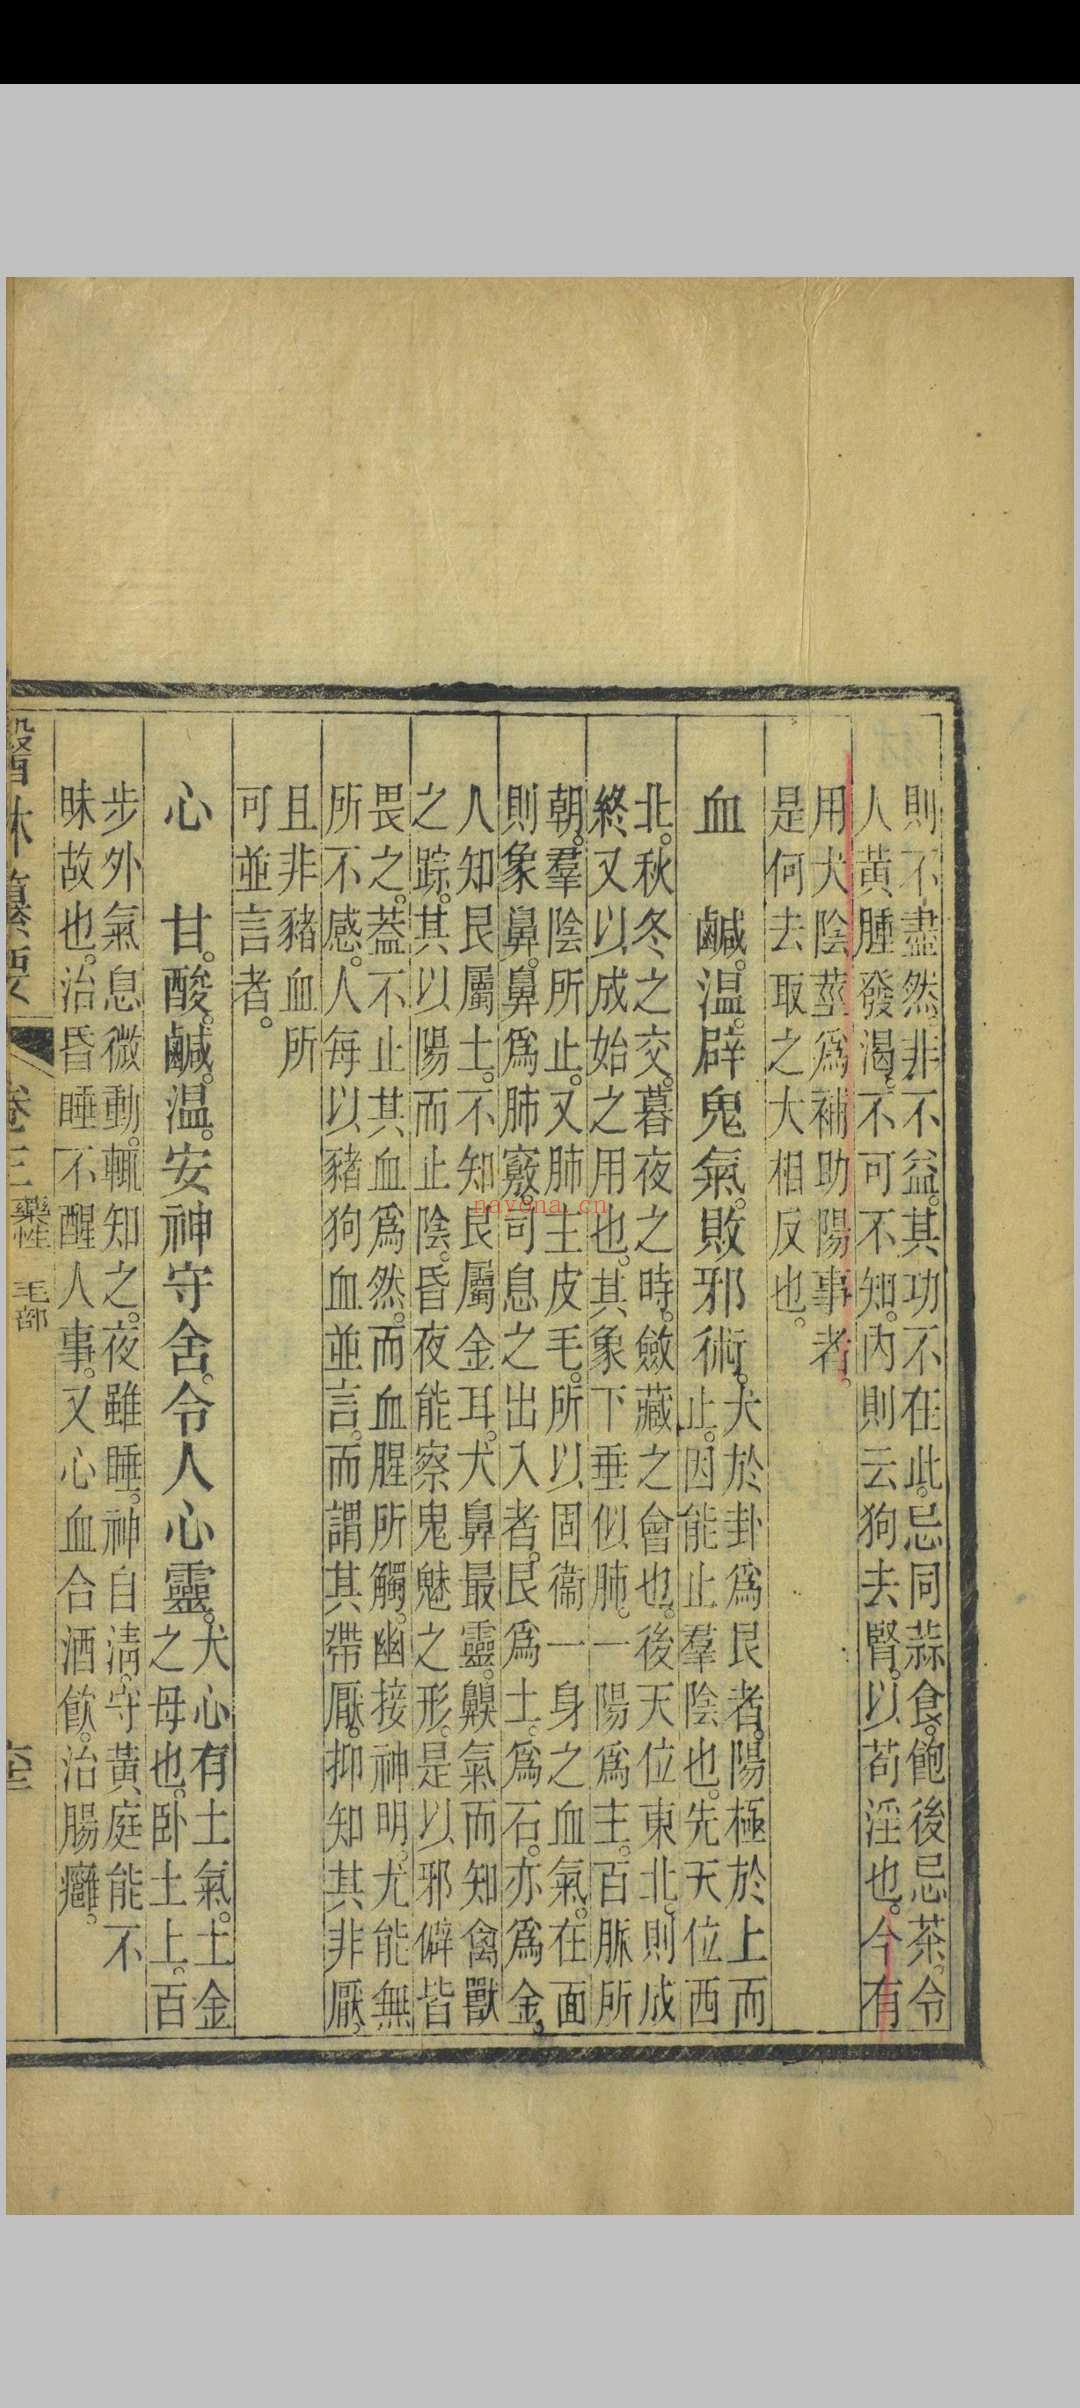 則不盡然。非不益。其功不在此。忌同蒜食。飽後忌茶。令
人黃腫發渴。不可不知。內則云狗去腎。以苟淫也。今有
用犬陰莖爲補助陽事者。
是何去取之大相反也。
血　鹹。温。辟鬼氣。敗邪術。
犬於卦爲艮者。陽極於上而
止。因能止羣陰也。先天位西
北。秋冬之交。暮夜之時。斂藏之會也。後天位東北。則成
終又以成始之用也。其象下垂似肺。一陽爲主。百脈所
朝。羣陰所止。又肺主皮毛。所以固衞一身之血氣。在面
則象鼻。鼻爲肺竅。司息之出入者。艮爲土。爲石。亦爲金。
人知艮屬土。不知艮屬金耳。犬鼻最靈。齅氣而知禽獸
之踪。其以陽而止陰。昏夜能察鬼魅之形。是以邪僻皆
畏之。葢不止其血爲然。而血腥所觸。幽接神明。尤能無
所不感。人每以豬狗血並言。而謂其帶厭。抑知其非厭。
且非豬血所
可並言者。
心　甘。酸。鹹。温。安神守舍。令人心靈。
犬心有土氣。土金
之母也。卧土上。百
步外氣息微動。輒知之。夜雖睡。神自清。守黃庭能不
昧故也。治昏睡不醒人事。又心血合酒飲。治腸癰。
醫林纂要
卷三
藥性　毛部